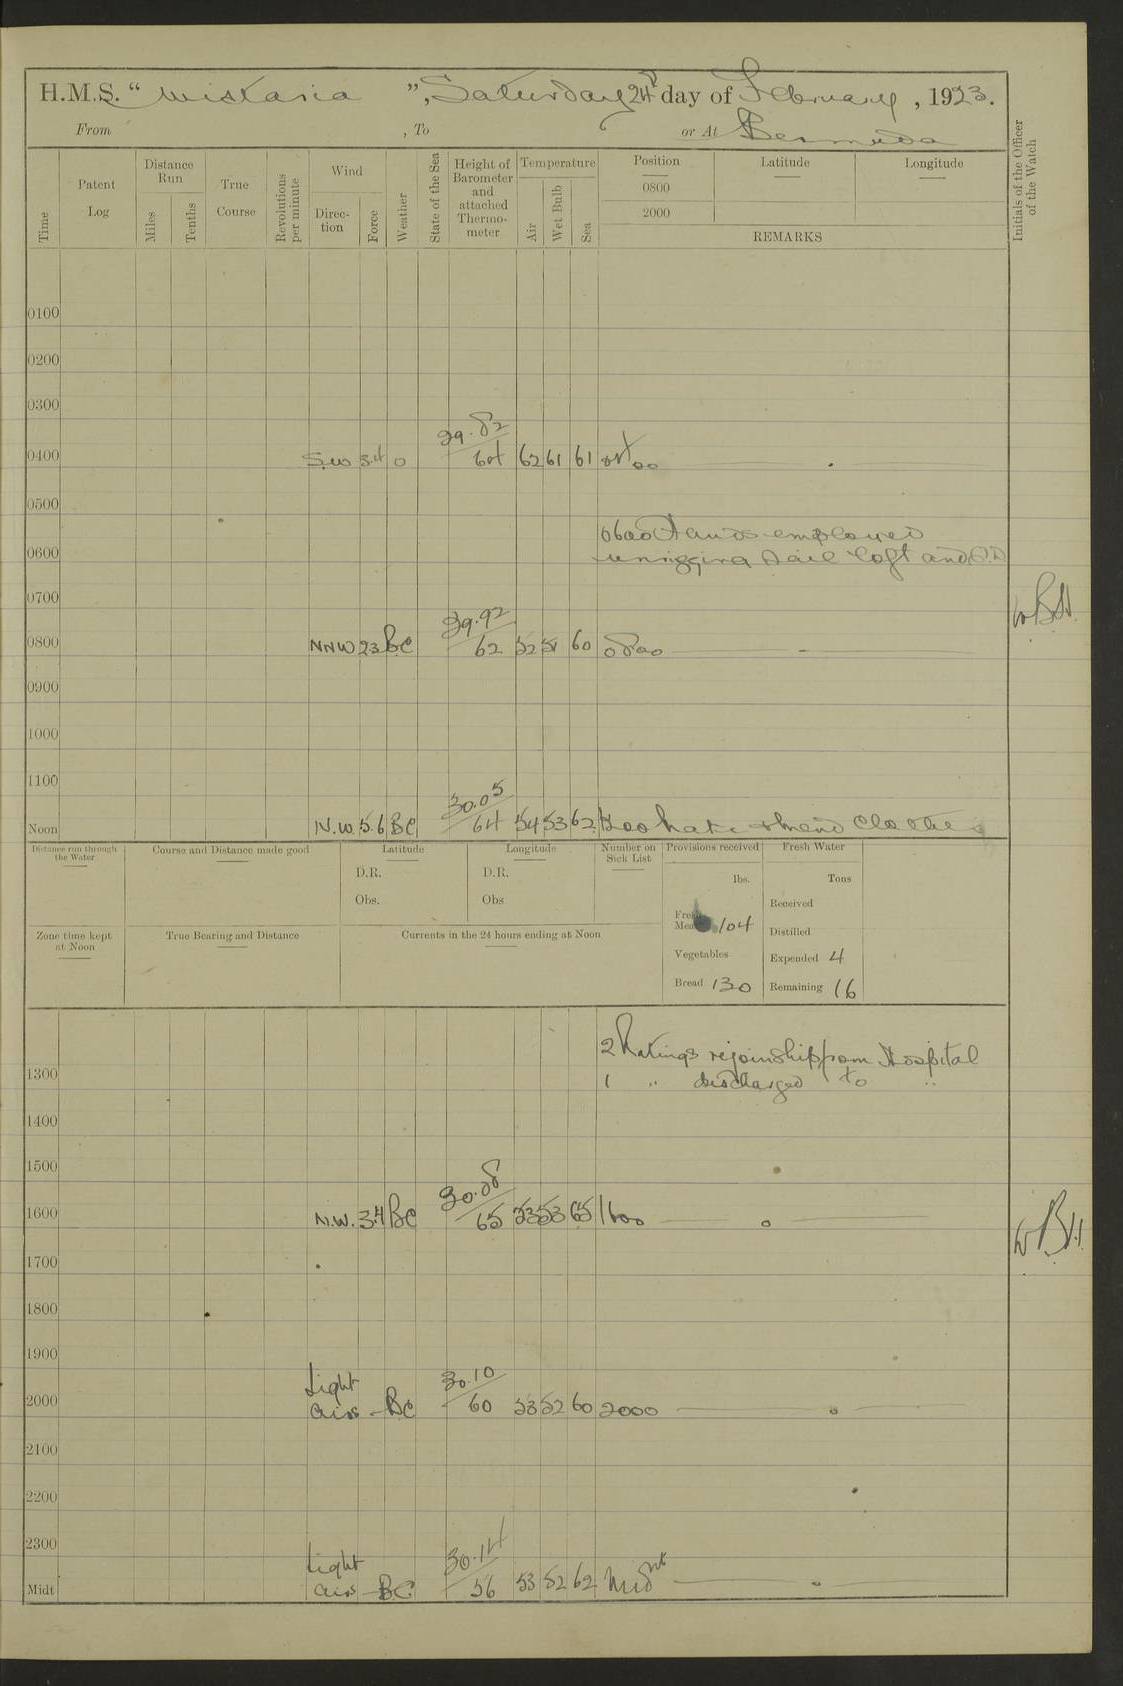 H.M.S. “ Wistaria ”, Saturday 24th day of February, 1923.
From , To or At Bermuda
Time
Patent Log
Distance Run
Miles
Tenths
True Course
Revolutions per minute
Wind
Direction
Force
Weather
State of the Sea
Height of Barometer and attached Thermometer
Temperature
Air
Wet Bulb
Sea
Position
0800
2000
Latitude
Longitude
REMARKS
Initials of the Officer of the Watch
0100
0200
0300
0400 S.W 3.4 O 29.82/64 62 61 61 0400
0500
0600 Hands employed
0600 unrigging sail loft and
0700
WBH
0800 NNW 2.3 BC 29.92/62 52 51 60 0800
0900
1000
1100
Noon N.W. 5.6 BC 30.05/64 54 53 62 make & mend clothes
Distance run through the Water
Course and Distance made good
Latitude
D.R.
Obs.
Longitude
D.R.
Obs
Number on Sick List
Provisions received
lbs.
Fresh Meat 104
Vegetables
Bread 130
Fresh Water
Tons
Received
Distilled
Expended 4
Remaining 16
Zone time kept at Noon
True Bearing and Distance
Currents in the 24 hours ending at Noon
2 Ratings rejoin ship from Hospital
1300 1 " discharged to "
1400
1500
1600 N.W. 3.4 BC 30.08/65 53 53 65 1600
WBH
1700
1800
1900
2000 Light airs - BC 30.10/60 53 52 60 2000
2100
2200
2300
Midt Light airs - BC 30.14/56 53 52 62 Midnt